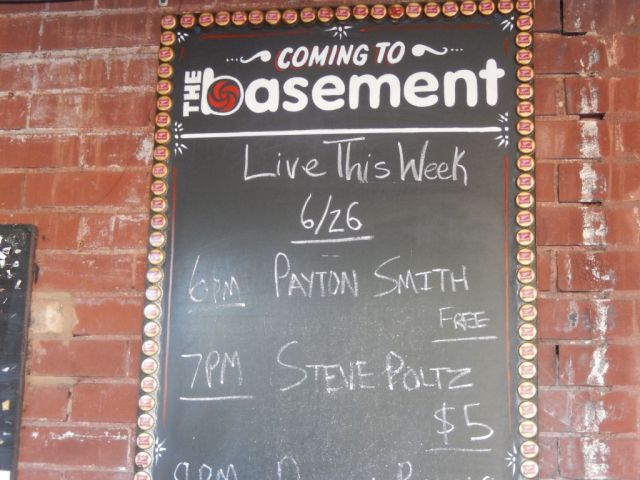 COMING TO
THE basement
Live This Week
6/26
6PM PAYTON SMITH
FREE
7PM STEVE POLTZ
$5
9PM